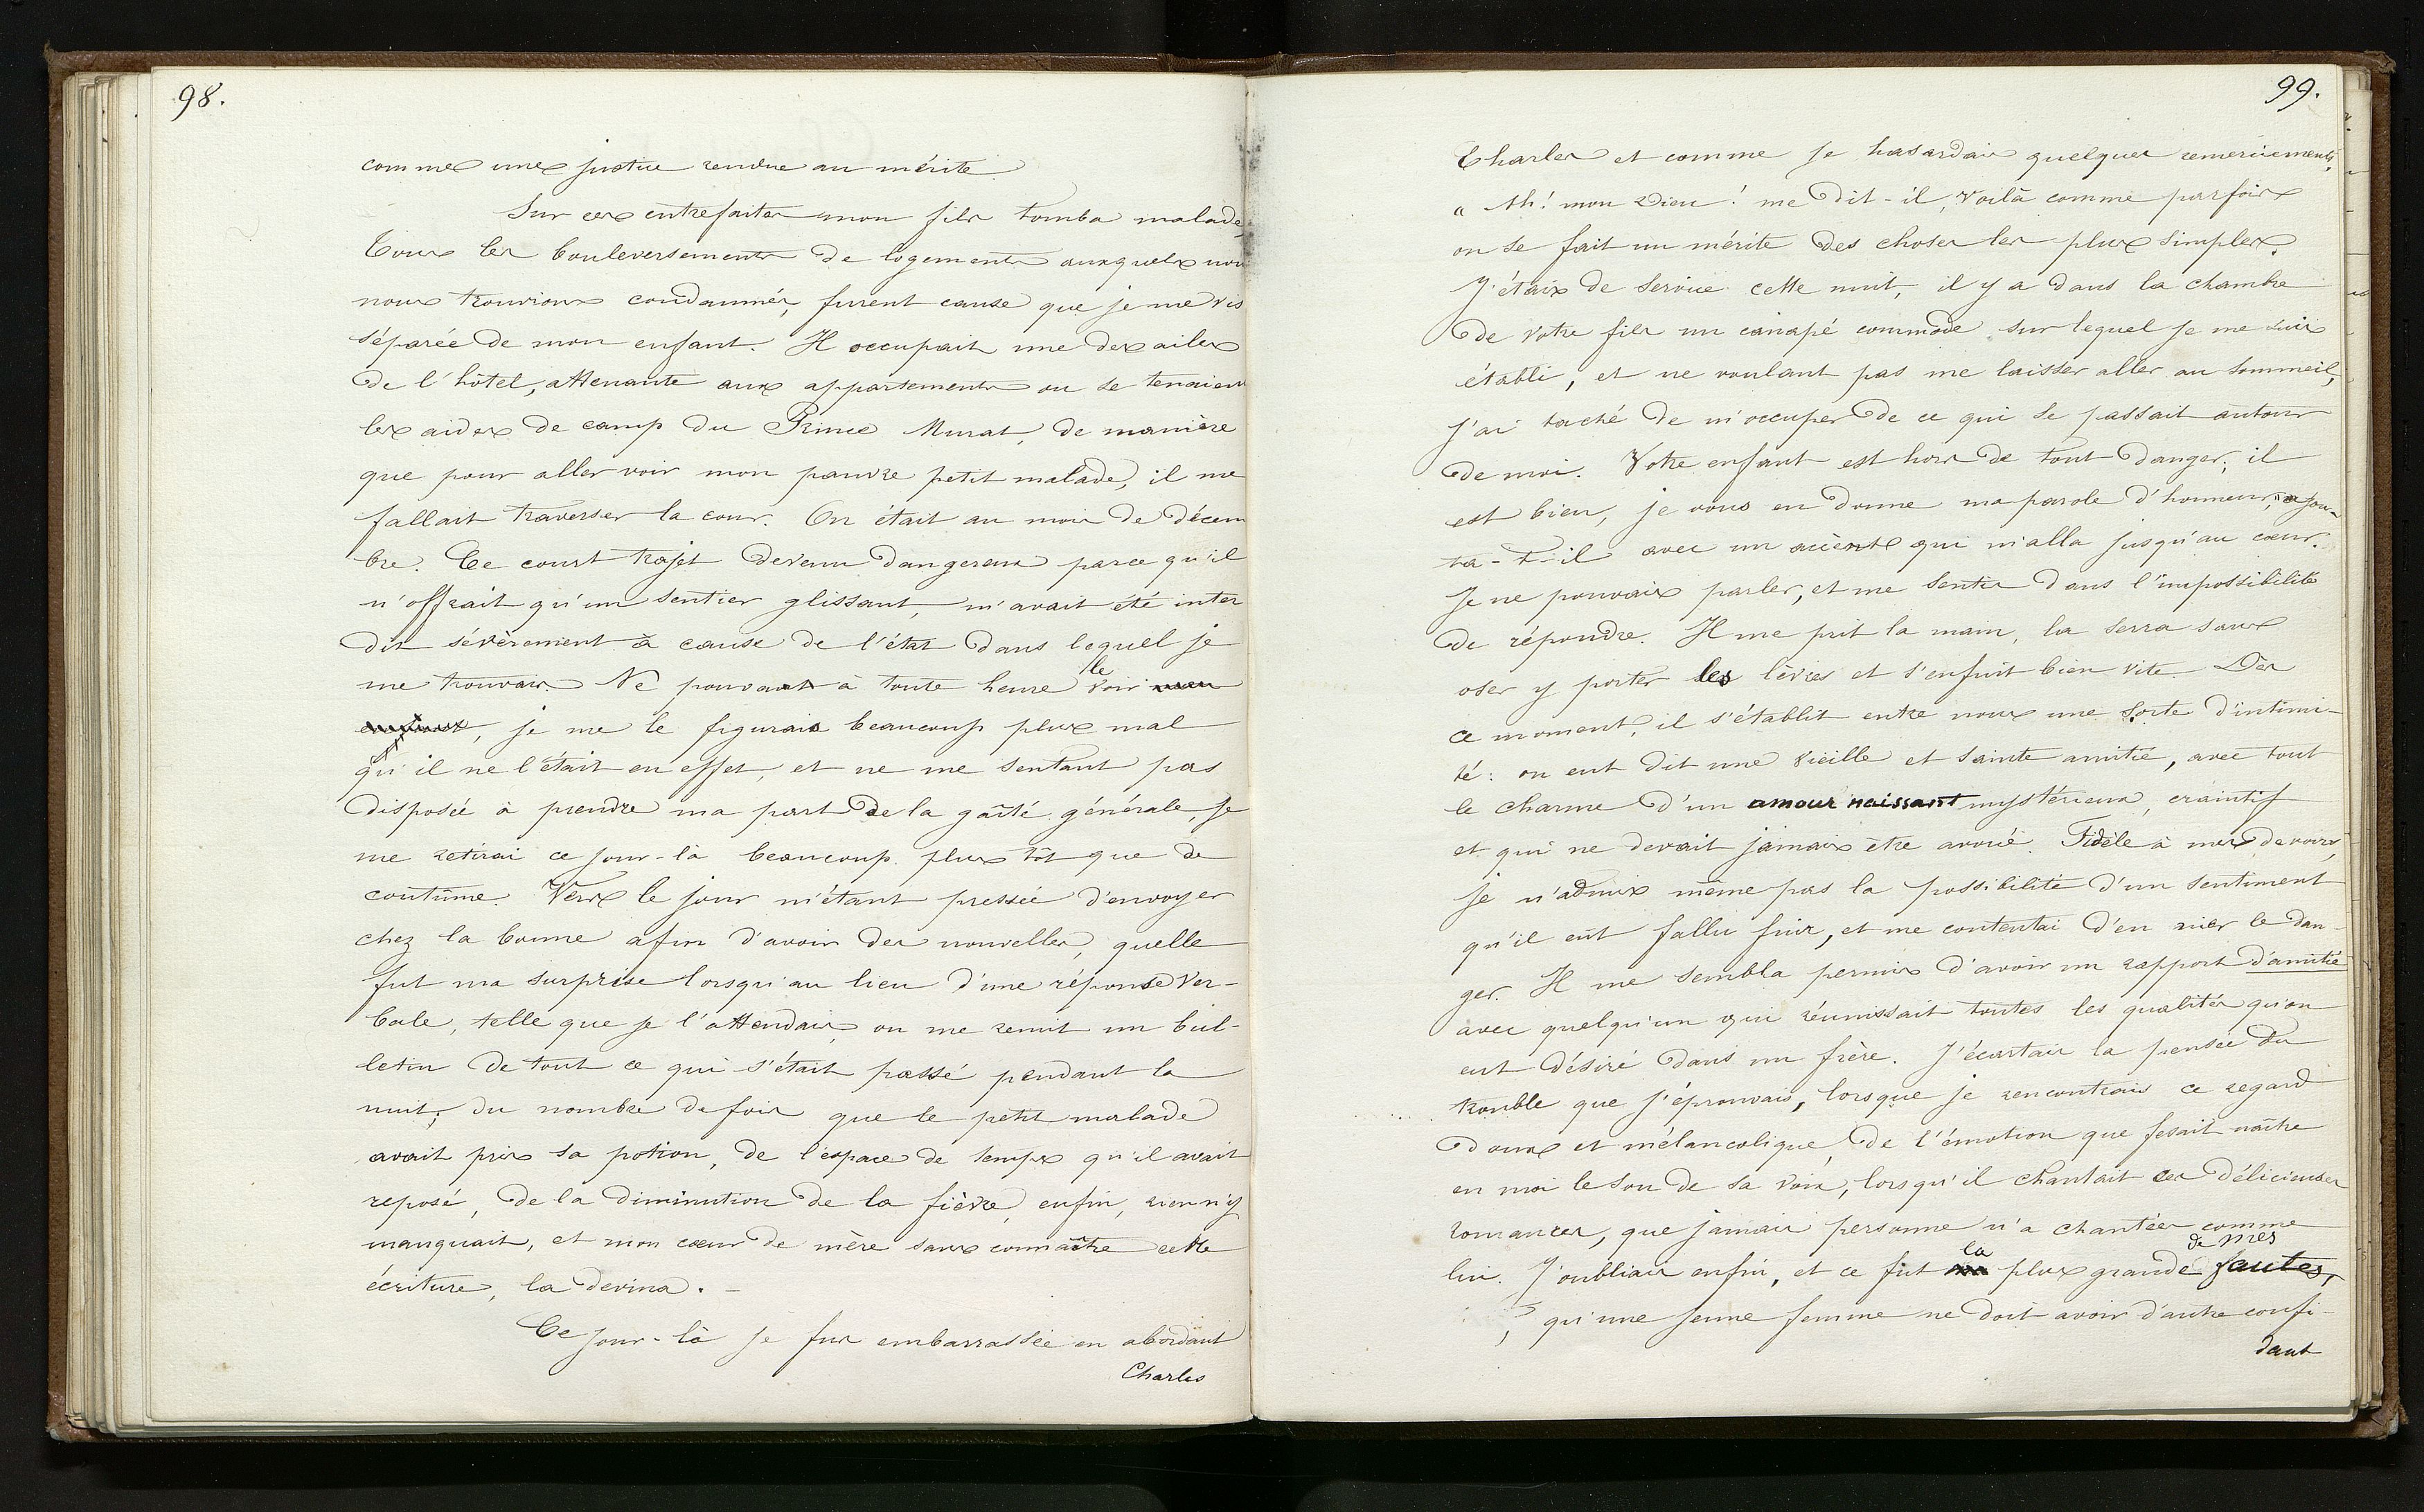 98.
comme une justice rendue au mérite
Sur ces entrefaites mon fils tomba malade,
Tous les bouleversements de logements auxquels nou
nous trouvions condamnés, furent cause que je me vis
séparée de mon enfant. Il occupait une des ailes
de l'hôtel, attenante aux appartements ou se tenaient
les aides de camp du Prince Murat, de manière
que pour aller voir mon pauvre petit malade, il me
fallait traverser la cour. On était au mois de décem
bre. Ce court trajet devenu dangereux parce qu'il
n'offrait qu'un sentier glissant, m'avait été inter
dit sévèrement à cause de l'état dans lequel je
me trouvais. Ne pouvant à toute heure le voir mon
enfant, je me le figurais beaucoup plus mal
qu'il ne l'était en effet, et ne me sentant pas
disposée à prendre ma part de la gaîté générale, je
me retirai ce jour-là beaucoup plus tôt que de
coutûme. Vers le jour m'étant pressée d'envoyer
chez la bonne afin d'avoir des nouvelles, quelle
fut ma surprise lorsqu'au lieu d'une réponse ver-
bale, telle que je l'attendais, on me remit un bul-
letin de tout ce qui s'était passé pendant la
nuit; du nombre de fois que le petit malade
avait pris sa potion, de l'espace de temps qu'il avait
reposé, de la diminution de la fièvre, enfin, rien n'y
manquait, et mon cœur de mère sans connaître cette
écriture, la devina.
Ce jour-là je fus embarrassée en abordant
Charles
99.
Charles et comme je hasardais quelques remerciements,
" Ah! mon Dieu! me dit-il, voilà comme parfois
on se fait un mérite des choses les plus simples.
J'étais de service cette nuit, il y a dans la chambre
de votre fils un canapé commode sur lequel je me suis
établi, et ne voulant pas me laisser aller au sommeil,
j'ai taché de m'occuper de ce qui se passait autour
de moi. Votre enfant est hors de tout danger; il
est bien, je vous en donne ma parole d'honneur, " ajou-
ta-t-il avec un accent qui m'alla jusqu'au cœur.
Je ne pouvais parler, et me sentis dans l'impossibilité
de répondre. Il me prit la main, la serra sans
oser y porter les lèvres et s'enfuit bien vite. Dès
ce moment, il s'établit entre nous une sorte d'intimi-
té: on eut dit une vieille et sainte amitié, avec tout
le charme d'un amour naissant mystérieux, craintif
et qui ne devait jamais être avoué. Fidèle à mes devoirs,
je n'admis même pas la possibilité d'un sentiment
qu'il eût fallu fuir, et me contentai d'en nier le dan-
ger. Il me sembla permis d'avoir un rapport d'amitié
avec quelqu'un qui réunissait toutes les qualités qu'on
eut désiré dans un frère. J'écartais la pensée du
trouble que j'éprouvais, lorsque je rencontrais ce regard
doux et mélancolique, de l'émotion que fesait naître
en moi le son de sa voix, lorsqu'il chantait ces délicieuses
romances, que jamais personne n'a chantées comme
lui. J'oubliais enfin, et ce fut la plus grande de mes fautes,
qu'une jeune femme ne doit avoir d'autre confi-
dant